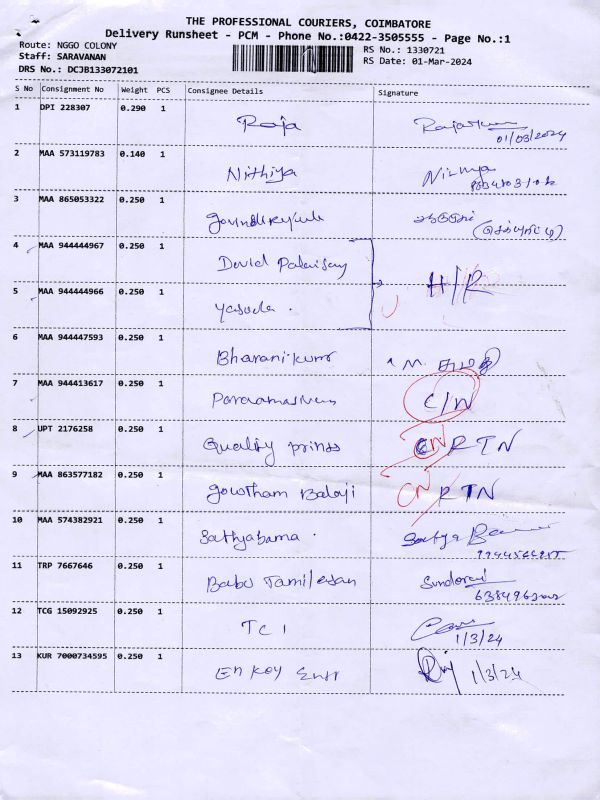 THE PROFESSIONAL COURIERS, COIMBATORE
Delivery Runsheet - PCM - Phone No.:0422-3505555 - Page No.:1
Route: NGGO COLONY
RS No.: 1330721
Staff: SARAVANAN
RS Date: 01-Mar-2024
DRS No.: DCJB133072101
S No Consignment No Weight PCS Consignee Details Signature
1 DPI 228307 0.290 1 Raja
01/03/2024
2 MAA 573119783 0.140 1 Nithiya Nithya
3 MAA 865053322 0.250 1
4 MAA 944444967 0.250 1 David
5 MAA 944444966 0.250 1 Yasoda. H/R
6 MAA 944447593 0.250 1 Bharanikumar M. சுமதி
7 MAA 944413617 0.250 1 C/N
8 UPT 2176258 0.250 1 Quality prints CN RTN
9 MAA 863577182 0.250 1 Gowtham Balaji CN RTN
10 MAA 574382921 0.250 1 Sathyabama. Sathya
11 TRP 7667646 0.250 1 Babu Tamilesan Sundorai
12 TCG 15092925 0.250 1 TCI
1/3/24
13 KUR 7000734595 0.250 1 En Key 1/3/24